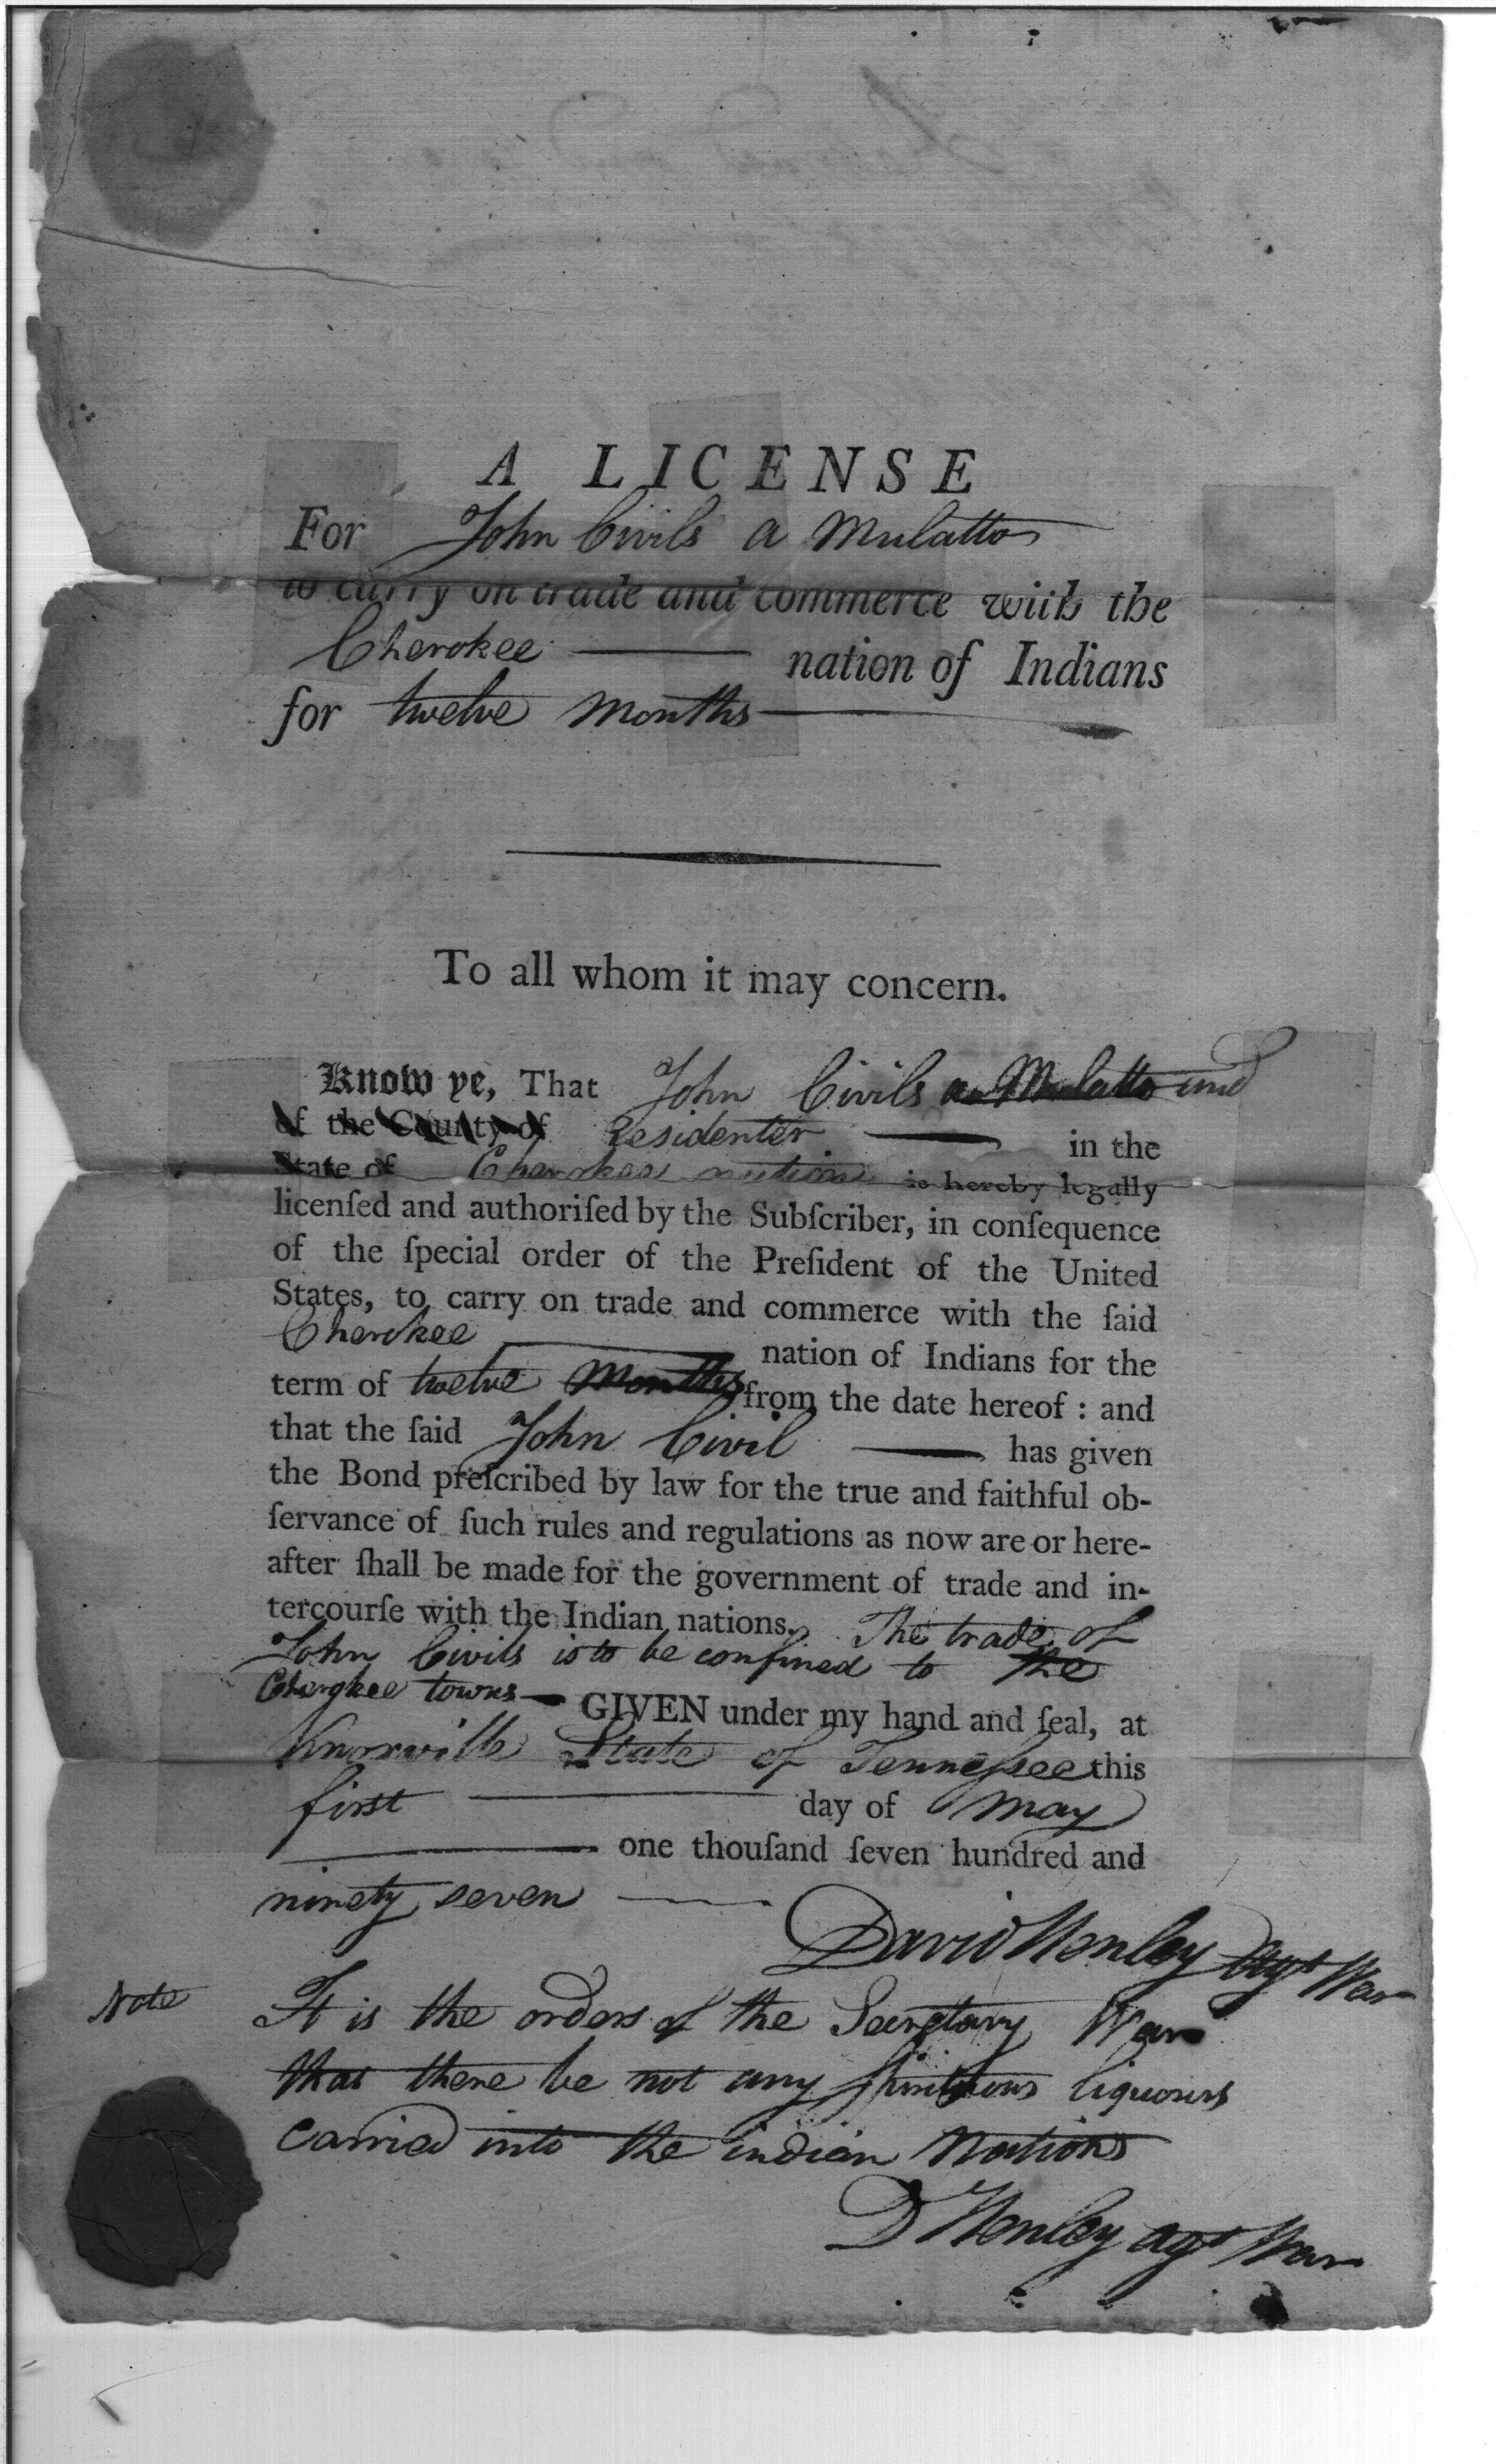 A LICENSE
For John Civils a Mulatto
to carry on trade and commerce with the
Cherokee nation of Indians
for twelve Months
To all whom it may concern.
Know ye, That John Civils a Mulatto and
of the County of Residenter in the
State of Cherokee nation is hereby legally
licenſed and authoriſed by the Subſcriber, in conſequence
of the ſpecial order of the Preſident of the United
States, to carry on trade and commerce with the ſaid
Cherokee nation of Indians for the
term of twelve Months from the date hereof : and
that the ſaid John Civil has given
the Bond preſcribed by law for the true and faithful ob-
ſervance of ſuch rules and regulations as now are or here-
after ſhall be made for the government of trade and in-
tercourſe with the Indian nations. The trade of
John Civils is to be confined to the
Cherokee towns — GIVEN under my hand and ſeal, at
Knoxville State of Tenneſsee this
first day of May
one thouſand ſeven hundred and
ninety seven
David Henley Agt War
Note It is the orders of the Secretary War
that there be not any spiritous liquours
carried into the indian Nations
D Henley agt War